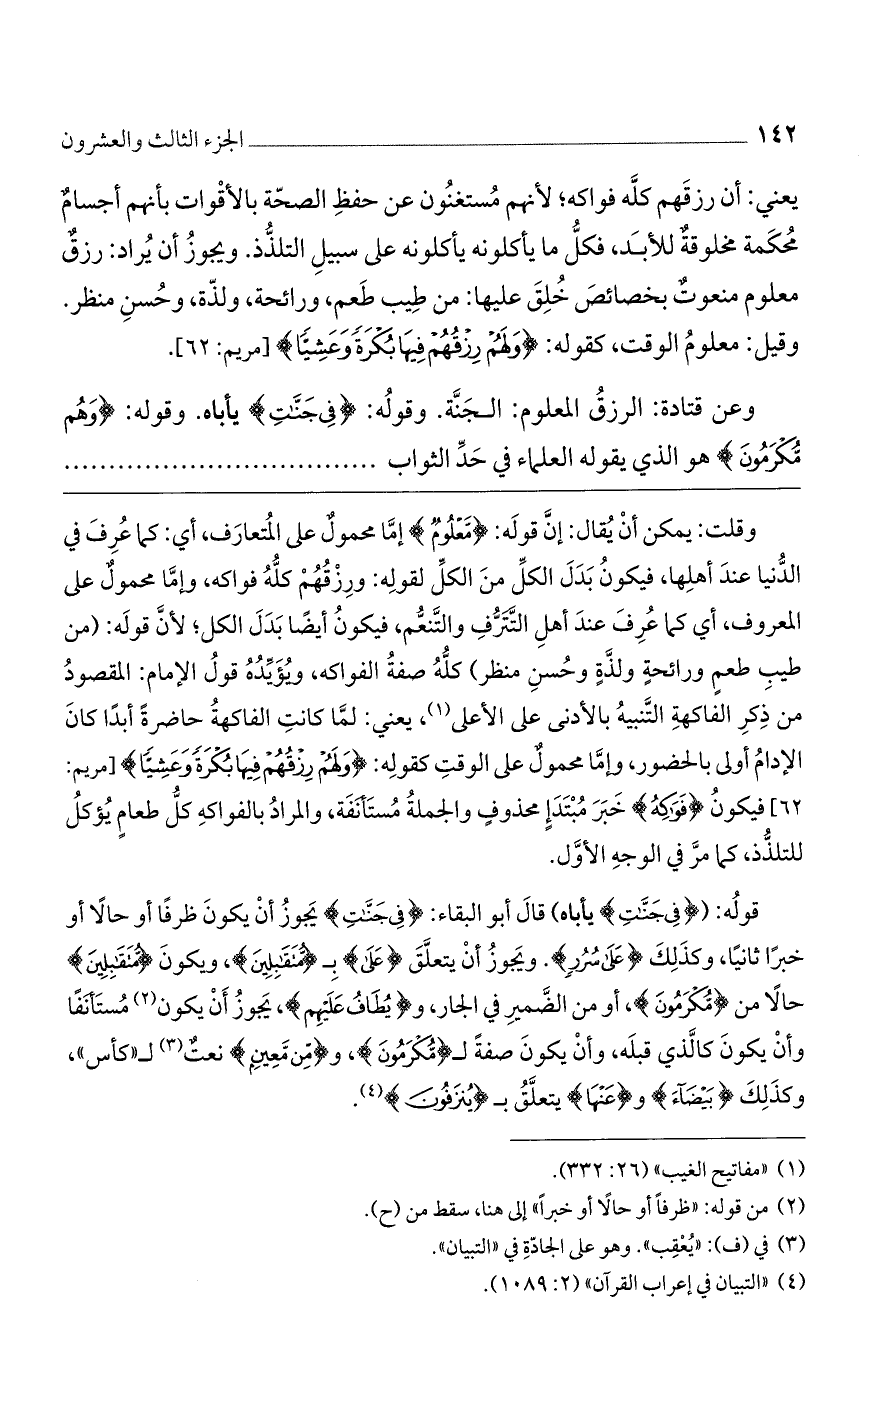 ١٤٢ ــــــــــــــــــــــــــــــــ الجزء الثالث والعشرون
يعني: أن رزقَهم كلَّه فواكه؛ لأنهم مُستغنُون عن حفظِ الصحّة بالأقْوات بأنهم أجسامٌ
مُحكَمة مخلوقةٌ للأبـد، فكلُّ ما يأكلونه يأكلونه على سبيلِ التلذُّذ. ويجوزُ أن يُراد: رزقٌ
معلوم منعوتٌ بخصائصَ خُلِقَ عليها: من طِيب طَعم، ورائحة، ولذّة، وحُسنِ منظر.
وقيل: معلومُ الوقت، كقوله: ﴿وَلَهُمْ رِزْقُهُمْ فِيهَا بُكْرَةً وَعَشِيًّا﴾ [مريم: ٦٢].
وعن قتادة: الرزقُ المعلوم: الـجَنَّة. وقولُه: ﴿فِي جَنَّاتِ﴾ يأباه. وقوله: ﴿وَهُم
مُّكْرَمُونَ﴾ هو الذي يقوله العلماء في حَدِّ الثواب ..................................
وقلت: يمكن أنْ يُقال: إنَّ قولَه: ﴿مَّعْلُومٌ﴾ إمَّا محمولٌ على المُتعارَف، أي: كما عُرِفَ في
الدُّنيا عندَ أهلِها، فيكونُ بَدَلَ الكلِّ منَ الكلِّ لقولِه: ورِزْقُهُمْ كلُّهُ فواكه، وإمَّا محمولٌ على
المعروف، أي كما عُرِفَ عندَ أهلِ التَّتَرُّفِ والتَّنعُّم، فيكونُ أيضًا بَدَلَ الكل؛ لأنَّ قولَه: (من
طيبِ طعمٍ ورائحةٍ ولذَّةٍ وحُسنِ منظر) كلُّهُ صفةُ الفواكه، ويُؤَيِّدُهُ قولُ الإمام: المقصودُ
من ذِكرِ الفاكهةِ التَّنبيهُ بالأدنى على الأعلى(١)، يعني: لمَّا كانتِ الفاكهةُ حاضرةً أبدًا كانَ
الإدامُ أولى بالحضور، وإمَّا محمولٌ على الوقتِ كقولِه: ﴿وَلَهُمْ رِزْقُهُمْ فِيهَا بُكْرَةً وَعَشِيًّا﴾ [مريم:
٦٢] فيكونُ ﴿فَوَاكِهُ﴾ خَبَرَ مُبْتَدَإٍ محذوفٍ والجملةُ مُستَأنَفَة، والمرادُ بالفواكهِ كلُّ طعامٍ يُؤكلُ
للتلذُّذ، كما مرَّ في الوجهِ الأوَّل.
قولُه: (﴿فِي جَنَّاتِ﴾ يأباه) قالَ أبو البقاء: ﴿فِي جَنَّاتِ﴾ يَجوزُ أنْ يكونَ ظرفًا أو حالًا أو
خبرًا ثانيًا، وكذَلِكَ ﴿عَلَىٰ سُرُرٍ﴾. ويَجوزُ أنْ يتعلَّقَ ﴿عَلَىٰ﴾ بـ ﴿مُّتَقَابِلِينَ﴾، ويكونَ ﴿مُّتَقَابِلِينَ﴾
حالًا من ﴿مُّكْرَمُونَ﴾، أو من الضَّميرِ في الجار، و﴿يُطَافُ عَلَيْهِم﴾، يَجوزُ أَنْ يكون(٢) مُستَأنَفًا
وأنْ يكونَ كالَّذي قبلَه، وأنْ يكونَ صفةً لـ﴿مُّكْرَمُونَ﴾، و﴿مِّن مَّعِينٍ﴾ نعتٌ(٣) لـ«كأس»،
وكذَلِكَ ﴿بَيْضَآءَ﴾ و﴿عَنْهَا﴾ يتعلَّقُ بـ ﴿يُنزَفُونَ﴾(٤).
(١) «مفاتيح الغيب» (٢٦: ٣٣٢).
(٢) من قوله: «ظرفاً أو حالًا أو خبراً» إلى هنا، سقط من (ح).
(٣) في (ف): «يُعْقِب». وهو على الجادّةِ في «التبيان».
(٤) «التبيان في إعراب القرآن» (٢: ١٠٨٩).